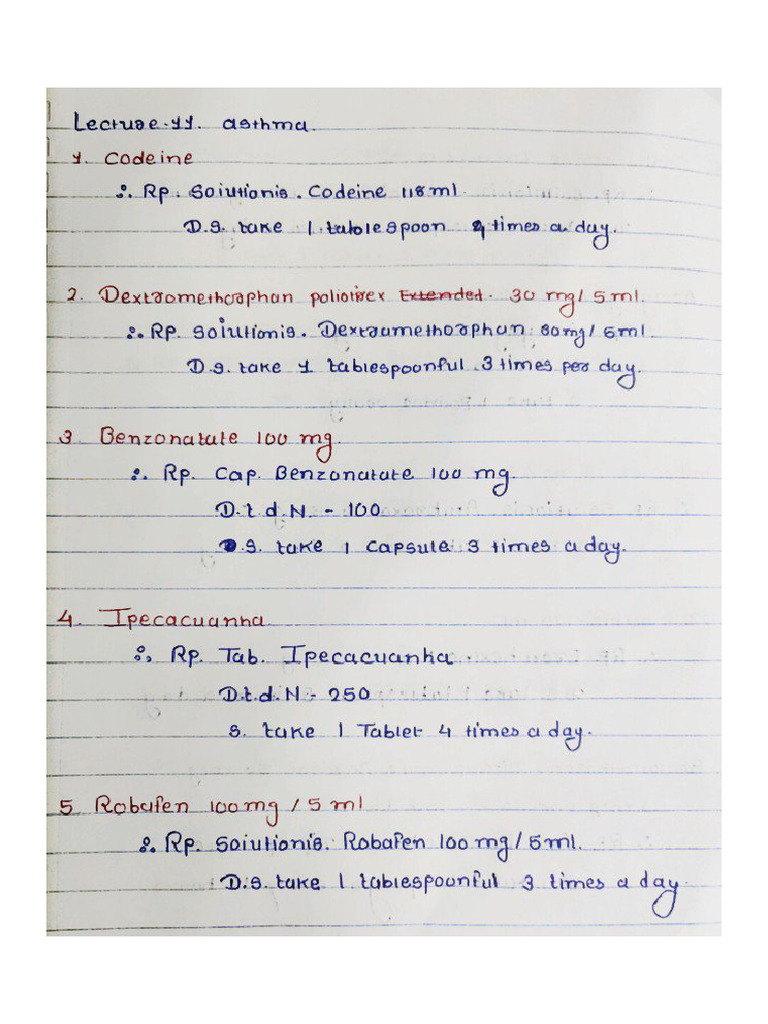 Lecture-11. asthma.
1. Codeine
∴ Rp. Soiutionis. Codeine 118 ml.
D.S. take 1 tablespoon 4 times a day.
2. Dextromethorphan poliotirex Extended. 30 mg/ 5 ml.
∴ Rp. Soiutionis. Dextraumethorphan 30mg/5ml.
D.S. take 1 tablespoonful 3 times per day.
3 Benzonatate 100 mg.
∴ Rp. Cap. Benzonatate 100 mg.
D.t.d.N. - 100
D.S. take 1 capsule 3 times a day.
4. Ipecacuanha
∴ Rp. Tab. Ipecacuanha
D.t.d.N - 250
S. take 1 Tablet 4 times a day.
5 Robafen 100mg / 5 ml
∴ Rp. Soiutionis. Robafen 100 mg/5ml.
D.S. take 1 tablespoonful 3 times a day.